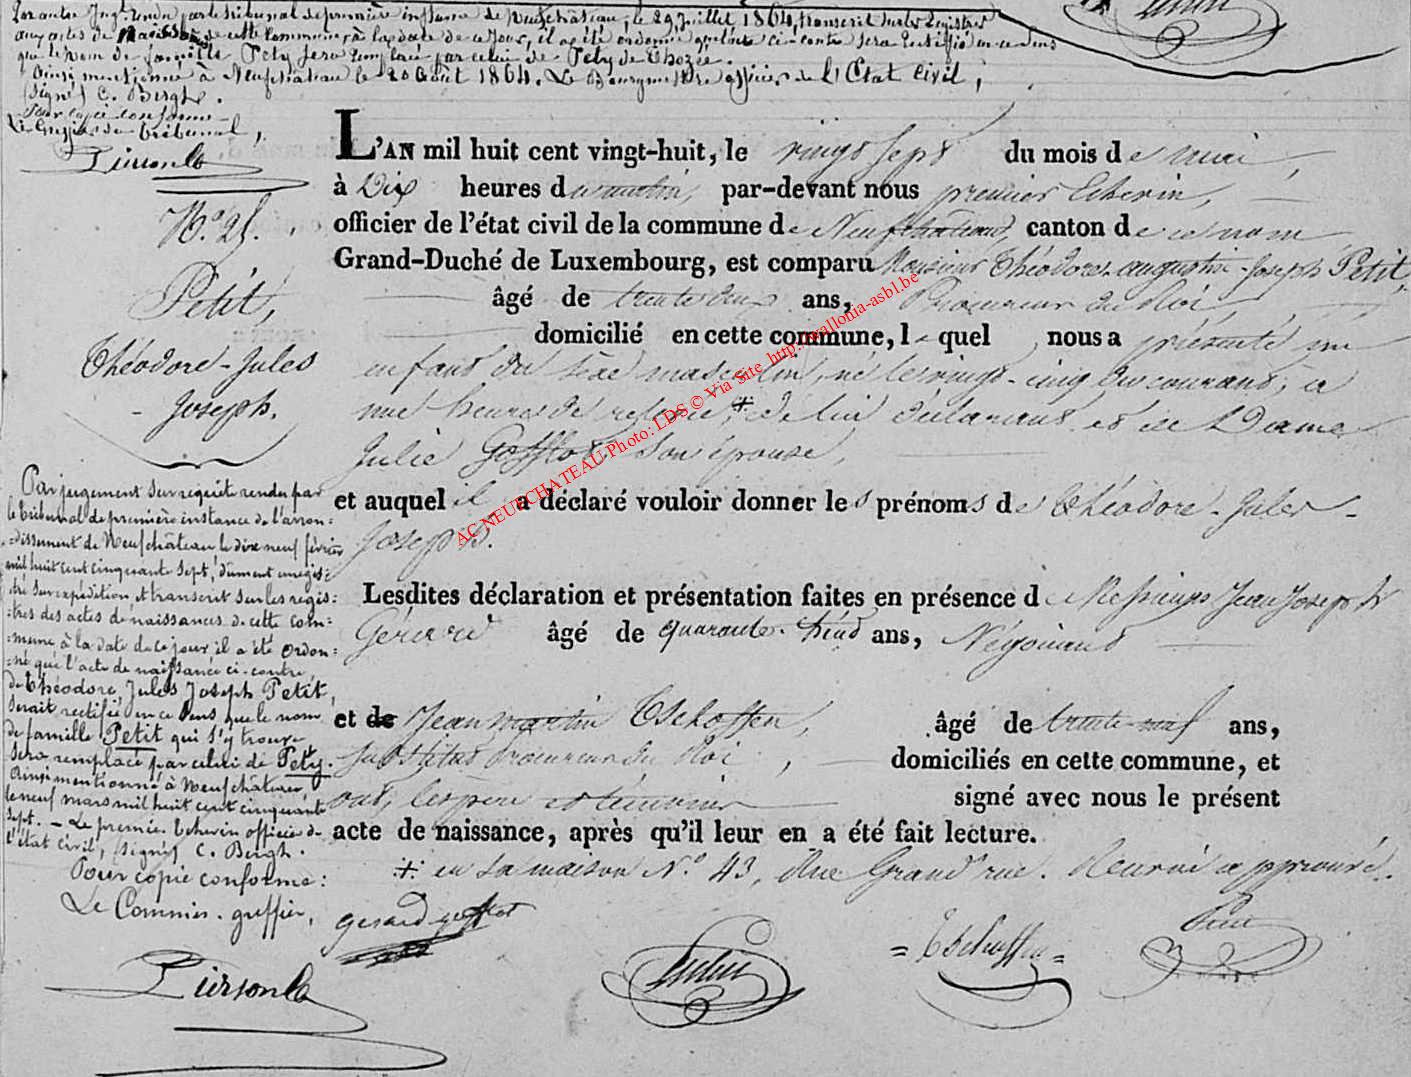 Par autre Jugt. rendu par le tribunal de première instance de Neufchâteau, le 29 Juillet 1864, transcrit sur les Registres
aux actes de de cette commune, à la date de ce jour, il a été ordonné que l'acte ci-contre sera rectifié en ce sens
que le nom de famille Pety sera remplacé par celui de Pety de Thozée.
Ainsi mentionné à Neufchâteau le 20 Août 1864. Le Bourgmestre officier de l'Etat Civil,
(signé) C. Bergh.
Pour copie conforme
Le Greffier du tribunal,
N.o 25.
Petit,
Théodore-Jules
-Joseph.
Par jugement sur requête rendu par
le Tribunal de première instance de l'arron=
=dissement de Neufchâteau le dix neuf février
mil huit cent cinquante sept, dûment enregis=
=tré sur expédition et transcrit sur les regis=
=tres des actes de naissances de cette com=
=mune à la date de ce jour il a été ordon=
=né que l'acte de naissance ci-contre,
de Théodore, Jules Joseph Petit,
serait rectifié en ce sens que le nom
de famille Petit qui s'y trouve
sera remplacé par celui de Pety.
Ainsi mentionné à Neufchâteau
le neuf mars mil huit cent cinquante
sept. - Le premier Echevin officier de
l'état Civil, (signé) C. Bergh.
Pour copie conforme:
Le Commis-greffier,
L'AN mil huit cent vingt-huit, le vingt sept du mois de mai,
à Dix heures du matin, par-devant nous premier Echevin,
officier de l'état civil de la commune de Neufchateau, canton de ce nom
Grand-Duché de Luxembourg, est comparu Monsieur Théodore-augustin-Joseph Petit,
âgé de trente deux ans, Procureur du Roi,
domicilié en cette commune, lequel nous a présenté un
enfant du sexe masculin, né le vingt-cinq du courant, à
une heure de relevée, * de lui déclarant et de Dame
Julie Gofflot Son épouse,
et auquel il a déclaré vouloir donner les prénoms de Théodore-Jules-
Joseph.
Lesdites déclaration et présentation faites en présence de Messieurs Jean Joseph
Gérard âgé de quarante ans, Négociant
et de Jean martin Tschoffen, âgé de trente-neuf ans,
substitut Procureur du Roi, domiciliés en cette commune, et
ont, le père et témoins signé avec nous le présent
acte de naissance, après qu'il leur en a été fait lecture.
* en sa maison N.o 43, Rue Grand'rue. Renvoi approuvé.
gerard gofflot
= Tschoffen =
AC NEUFCHATEAU Photo: LDS © Via Site http://wallonia-asbl.be